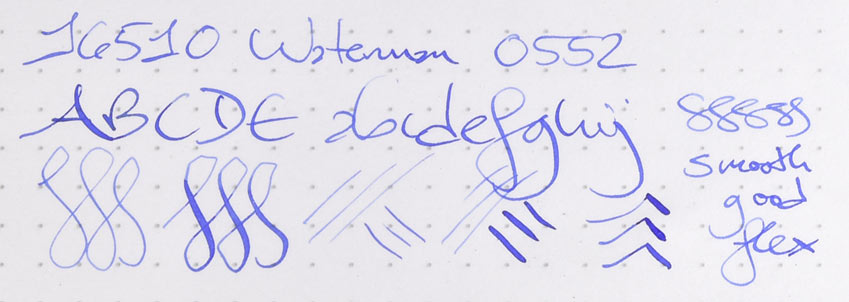 16510 Waterman 0552
ABCDE abcdefghij
smooth
good
flex